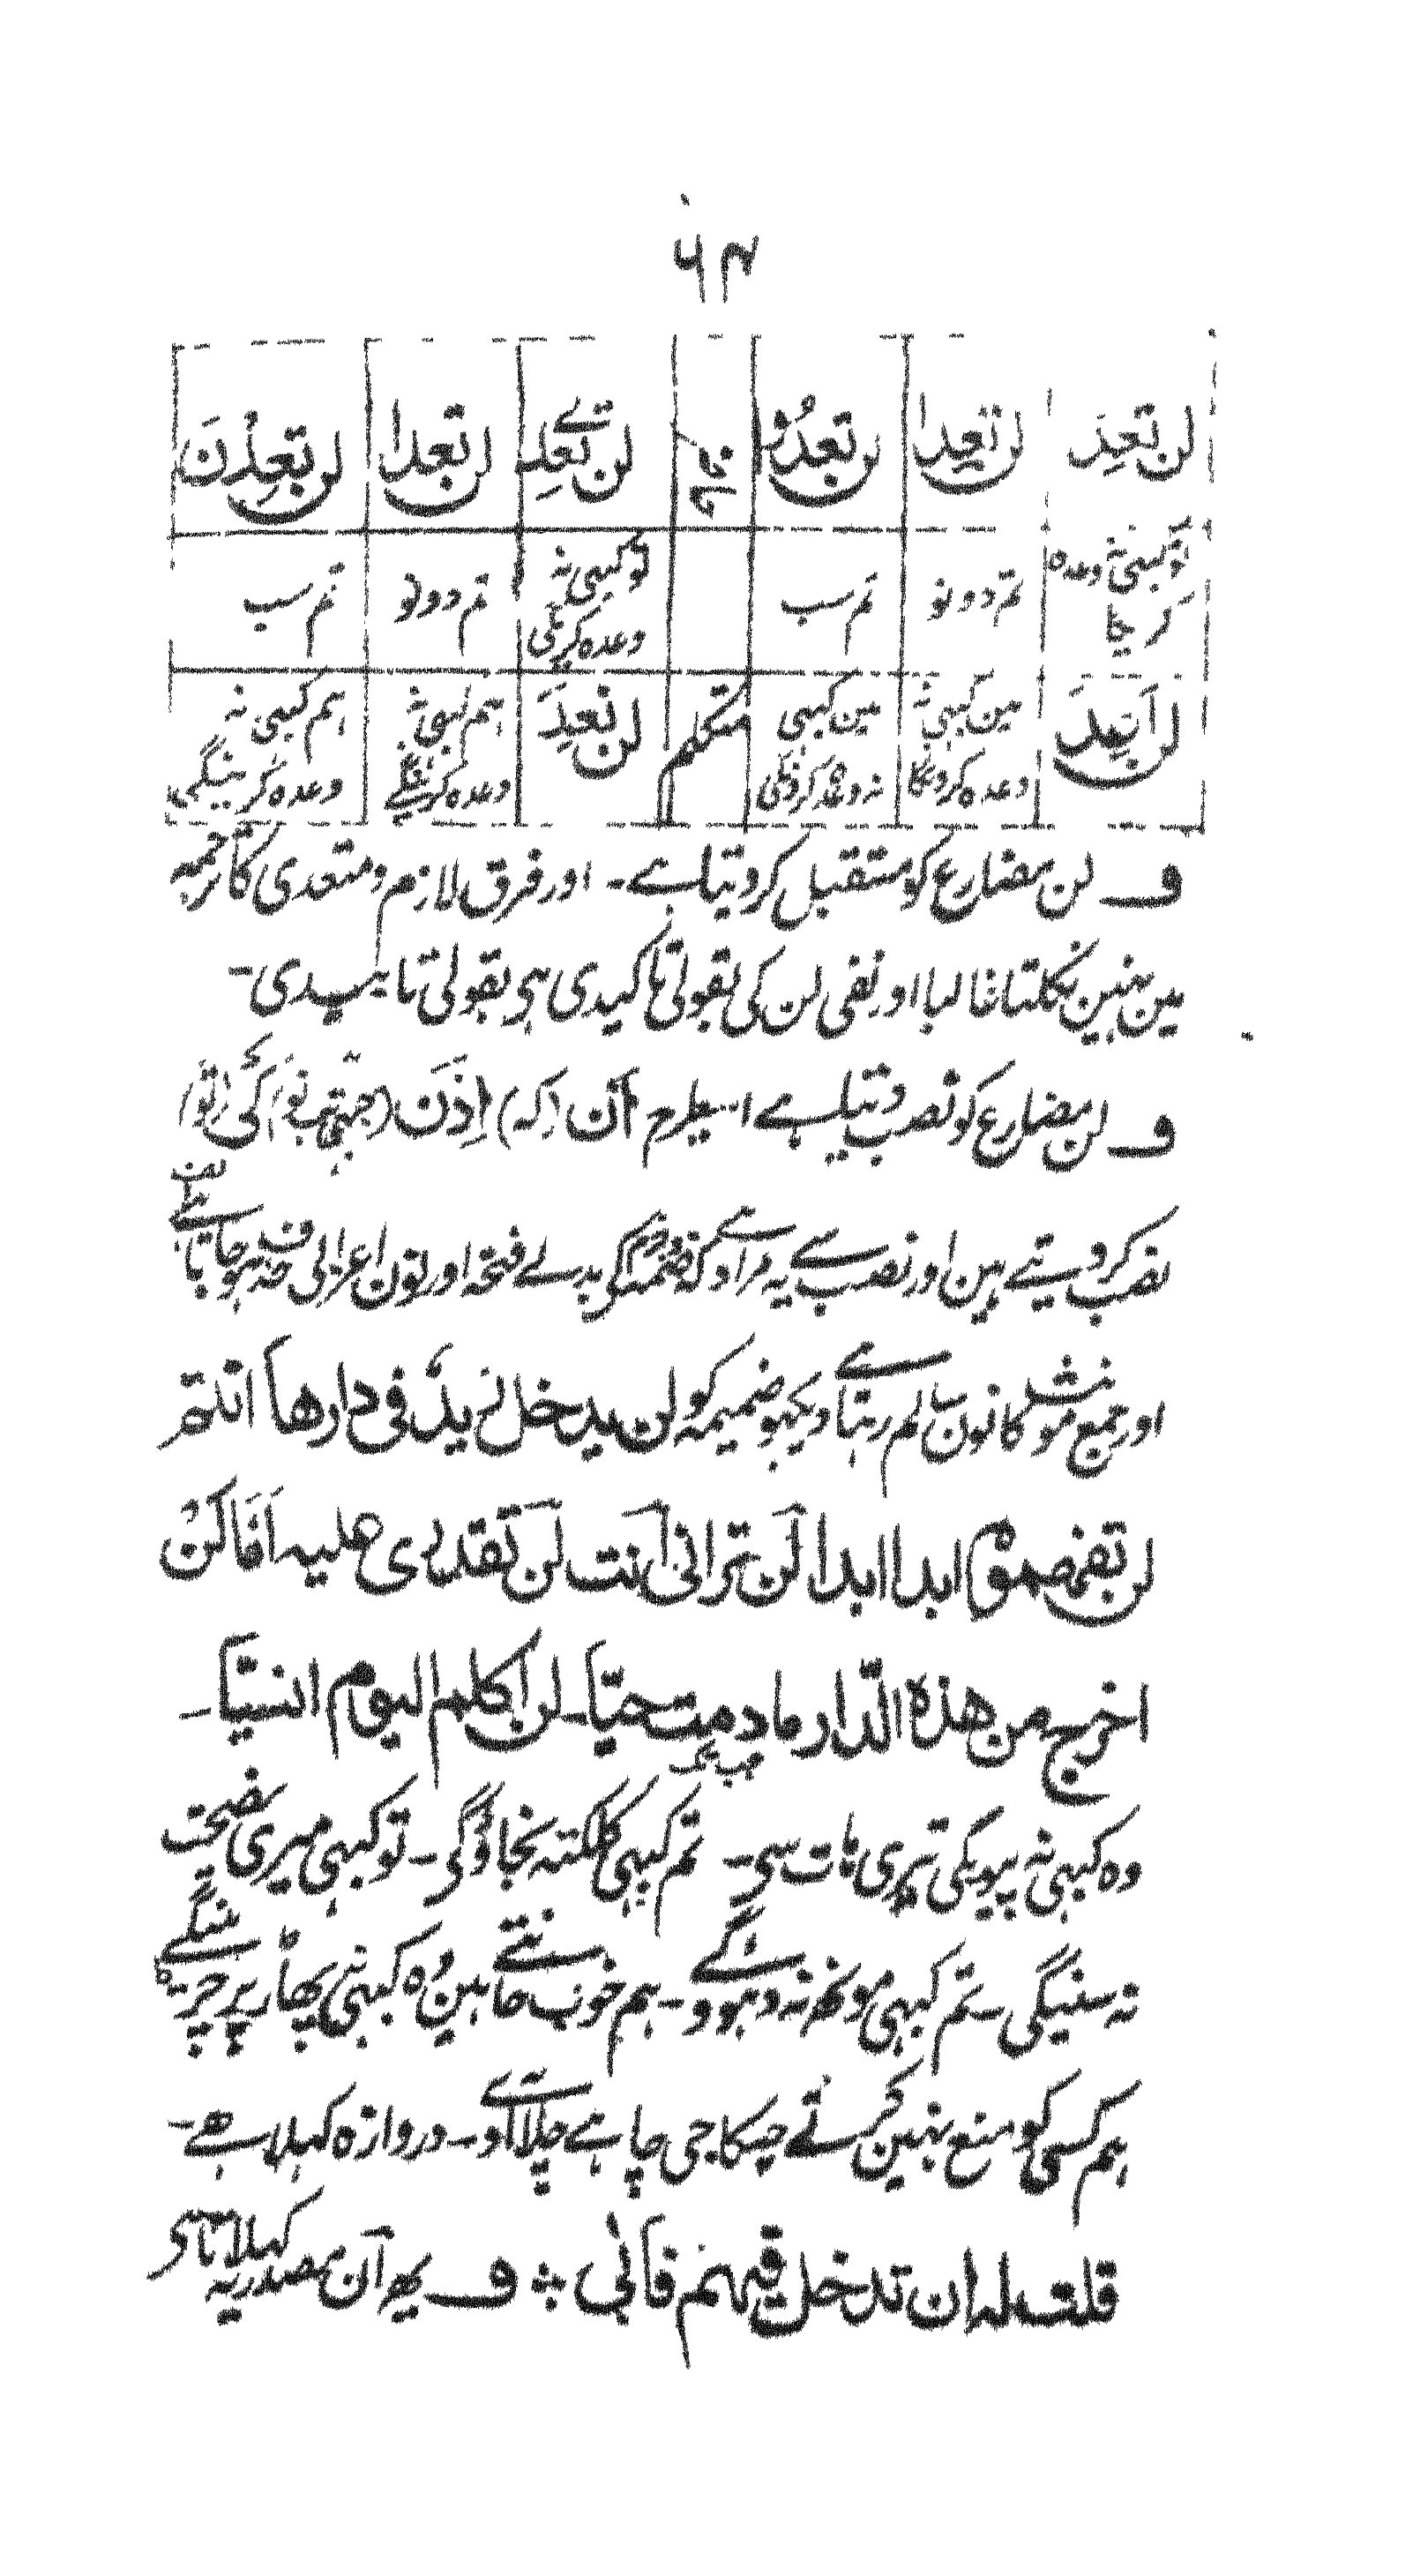 ۶۴
لن تعِدَ لن تعِدا لن تعِدُوا مخاطبہ لن تعِدِے لن تعدا لن تعِدْنَ
تو کبہی نہ وعدہ تم دونو تم سب تو کبہی نہ تم دونو تم سب
کریگا وعدہ کریگی
لن اَعِدَ مین کبہی نہ مین کبہی متکلم لن نعِدَ ہم کبہی نہ ہم کبہی نہ
وعدہ کرونگا نہ وعدہ کرونگی وعدہ کرینگے وعدہ کرینگی
ف لن مضارع کو مستقبل کردیتا ہے۔ اور فرق لازم و متعدی کا ترجمہ
مین نہین نکلتا غالبا اور نفی لن کی بقولی تاکیدی ہی بقولی تابیدی۔
ف لن مضارع کو نصب دیتا ہے اسیطرح اَن (کہ) اِذَن (جبہی تب تو) کَی (تو)
نصب کر دیتے ہین اور نصب سے یہ مراد ہے کہ ضمہ کی بدلے فتحہ اور نون اعرابی حذف ہو جاتا ہے
اور جمع مونث کا نون سالم رہتا ہے دیکہو ضمیمہ کو لن یدخل زیدٌ فی دارھا انتم
لن تفصموا ابدا ابدا لن ترانی اَنت لن تقدری علیہ اَفَاکُن
اخرج من ھذہ الدّار ما دمت حیّا۔ لن اکلم الیوم انسیّا۔
جب تک
وہ کبہی نہ پیویگی تیری ہات سی۔ تم کبہی کلکتہ نجاؤگی۔ تو کبہی میری نصیحت
نہ سنیگی۔ تم کبہی مونھ نہ دہووگے۔ ہم خوب جانتے ہین وُہ کبہی پہاڑ پر نہ چڑہینگے
ہم کسی کو منع نہین کرتے جسکا جی چاہے چلا آوے۔ دروازہ کہلا ہے۔
قلت لہ ان تدخل فیہم فابٰی ؞ ف یہ اَن مصدریہ کہلاتا ہی